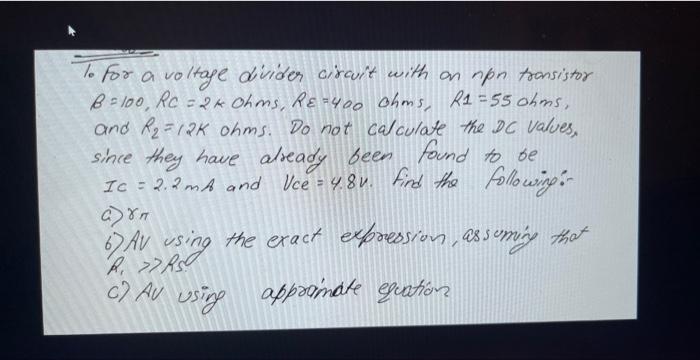 1. For a voltage divider circuit with an npn transistor
β=100, RC = 2k ohms, RE = 400 ohms, R1 = 55 ohms,
and R2 = 12K ohms. Do not calculate the DC values,
since they have already been found to be
IC = 2.2mA and Vce = 4.8v. Find the following:-
a) rπ
b) AV using the exact expression, assuming that
Ri >> Rs.
c) AV using approximate equation